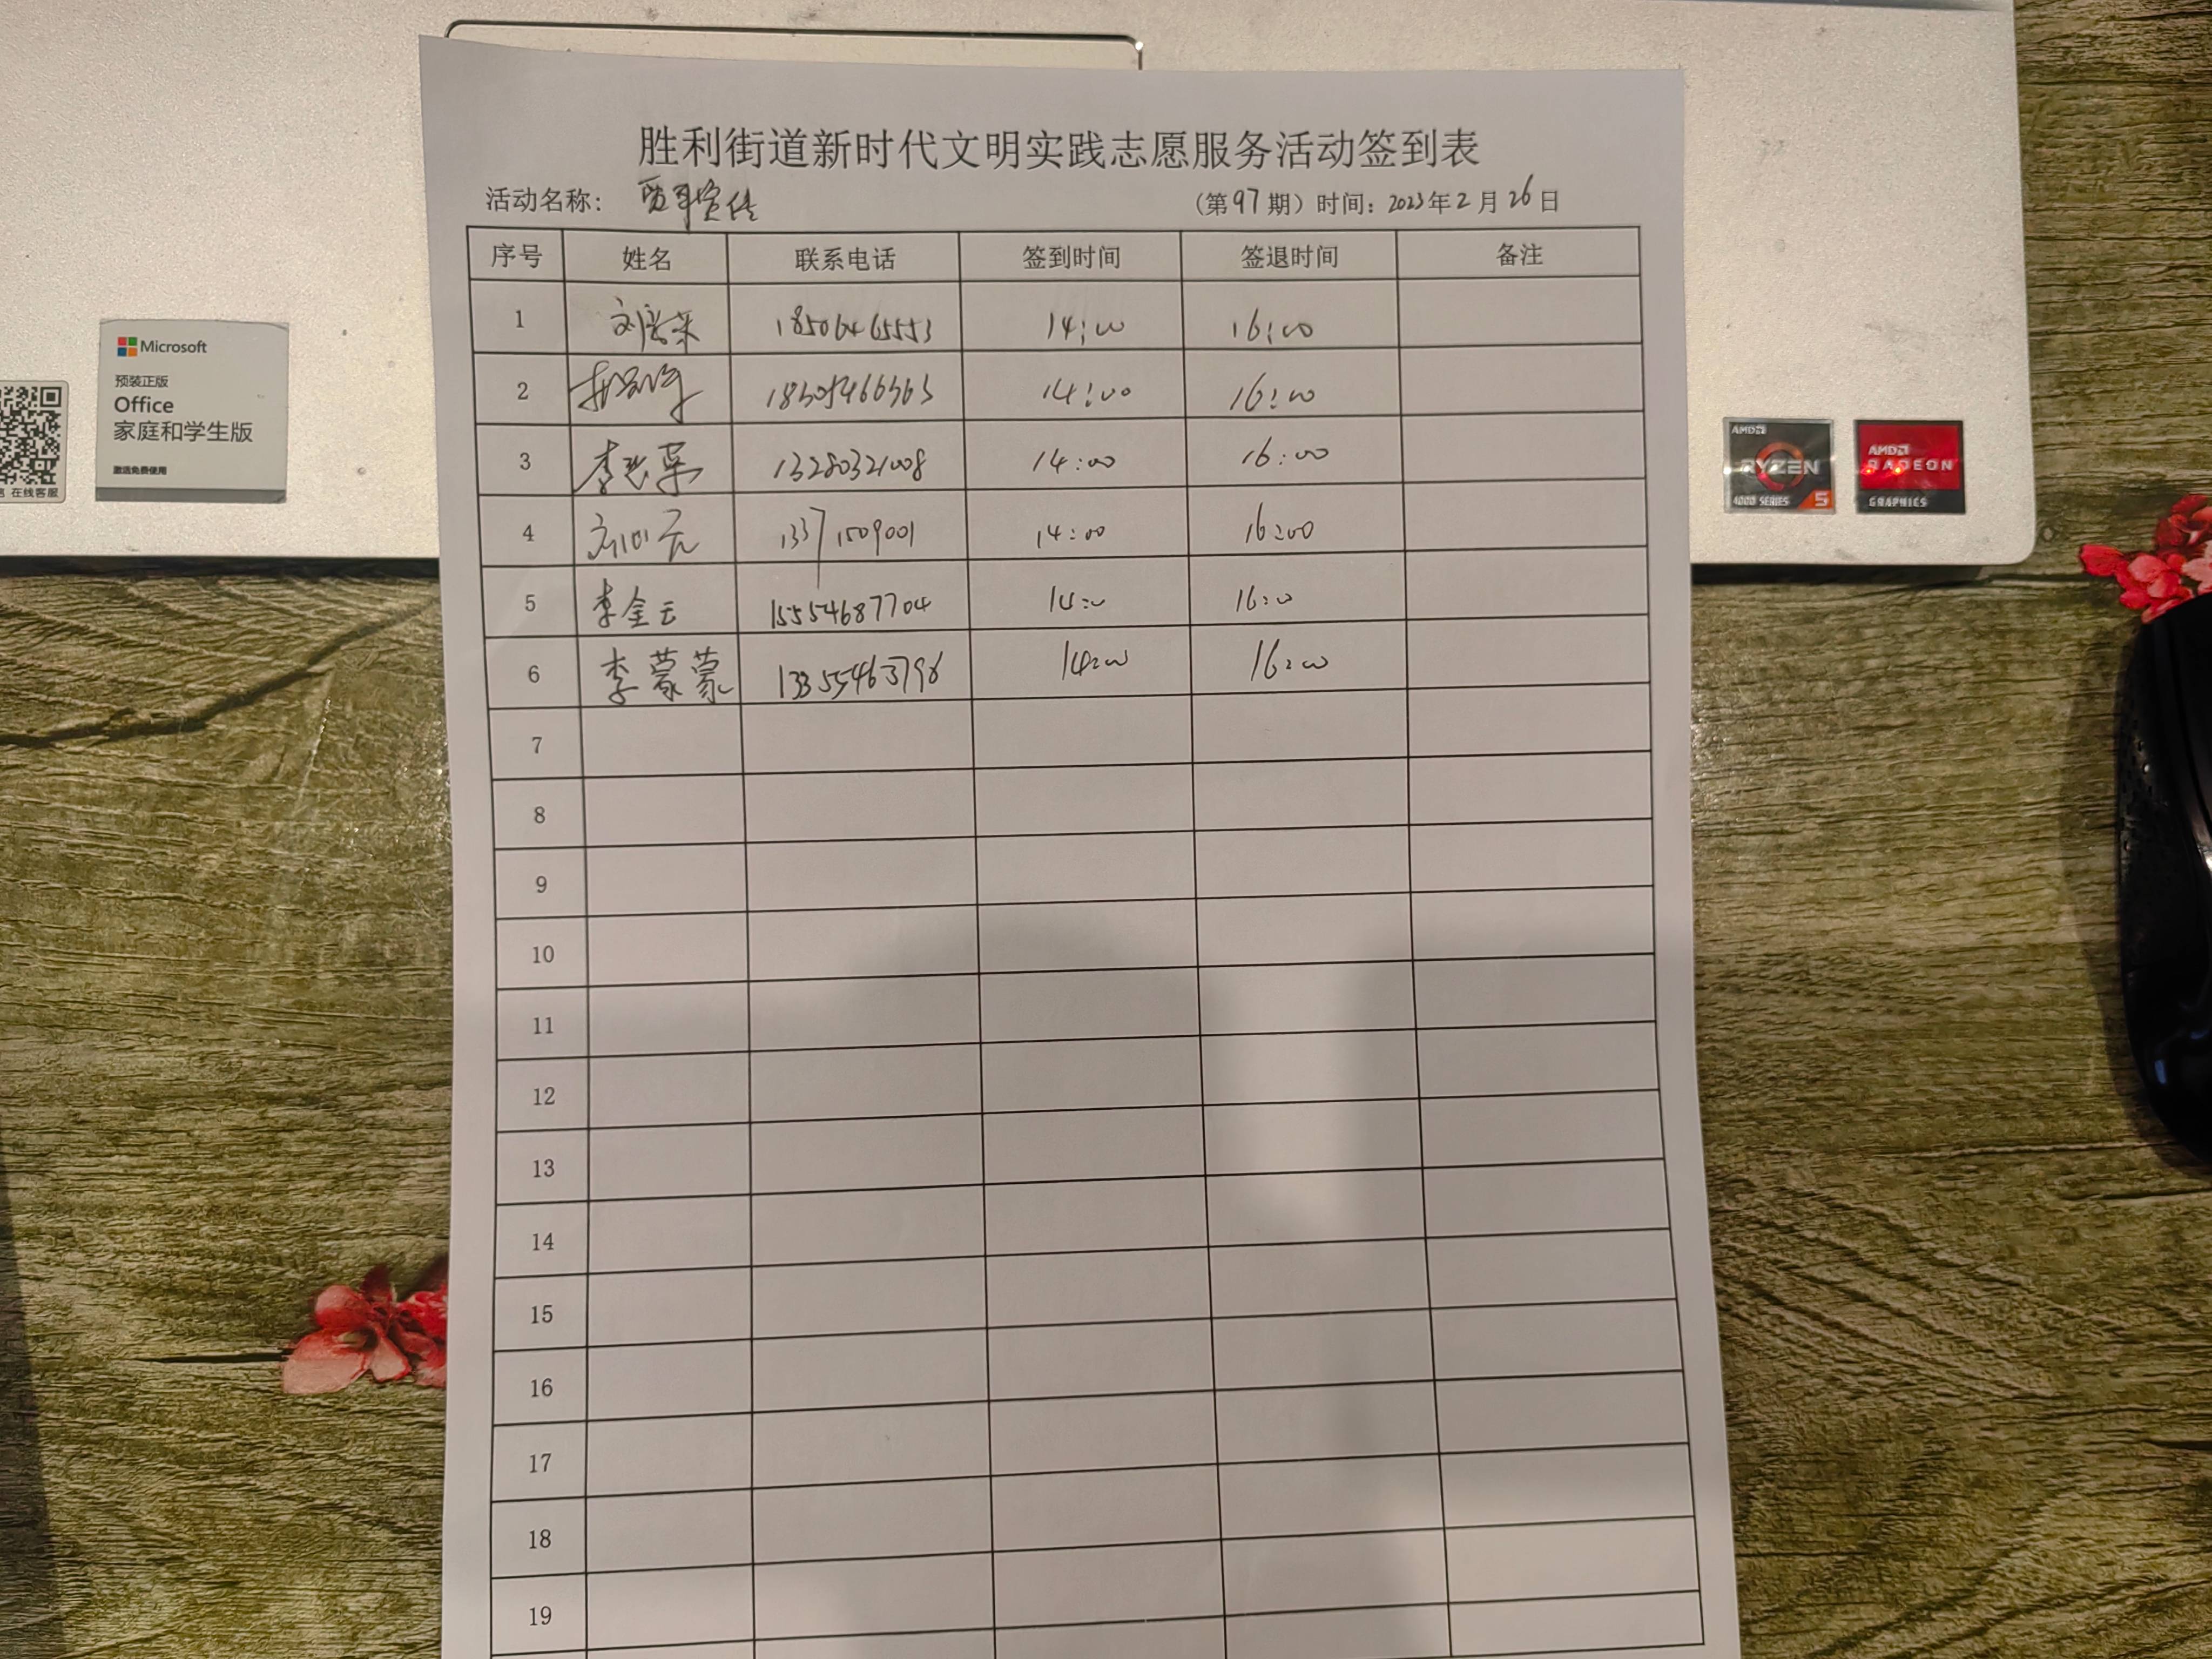 胜利街道新时代文明实践志愿服务活动签到表
活动名称： 宣传 （第97期）时间：2023年2月26日
序号 姓名 联系电话 签到时间 签退时间 备注
1 18506465553 14:00 16:00
2 14:00 16:00
3 13280321008 14:00 16:00
4 13371509001 14:00 16:00
5 李金云 15554687704 14:00 16:00
6 李蒙蒙 13355463798 14:00 16:00
7
8
9
10
11
12
13
14
15
16
17
18
19
Microsoft
预装正版
Office
家庭和学生版
激活免费使用
在线客服
AMD
RYZEN
4000 SERIES 5
AMD
RADEON
GRAPHICS